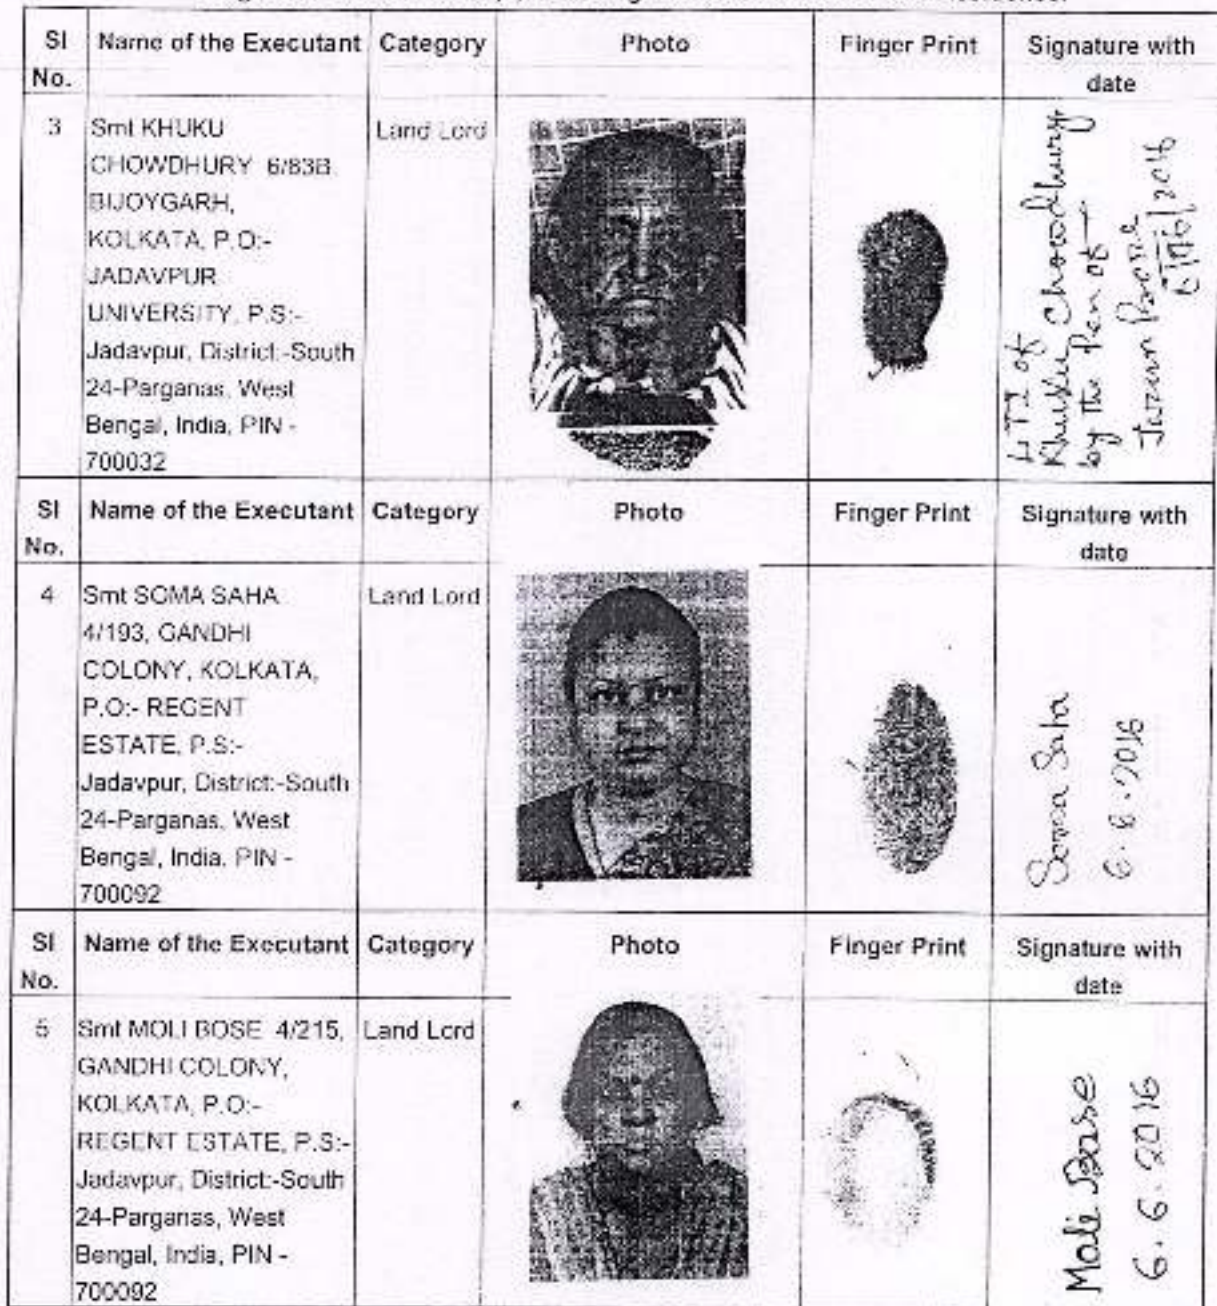 SI No. Name of the Executant Category Photo Finger Print Signature with date
3 Smt KHUKU Land Lord
CHOWDHURY 6/83B,
BIJOYGARH,
KOLKATA, P.O:-
JADAVPUR
UNIVERSITY, P.S:-
Jadavpur, District:-South
24-Parganas, West
Bengal, India, PIN -
700032
LTI of
Khuku Chowdhury
by the Pen of
SI No. Name of the Executant Category Photo Finger Print Signature with date
4 Smt SOMA SAHA Land Lord
4/193, GANDHI
COLONY, KOLKATA,
P.O:- REGENT
ESTATE, P.S:-
Jadavpur, District:-South
24-Parganas, West
Bengal, India, PIN -
700092
Soma Saha
6.6.2016
SI No. Name of the Executant Category Photo Finger Print Signature with date
5 Smt MOLI BOSE 4/215, Land Lord
GANDHI COLONY,
KOLKATA, P.O:-
REGENT ESTATE, P.S:-
Jadavpur, District:-South
24-Parganas, West
Bengal, India, PIN -
700092
Moli Bose
6.6.2016